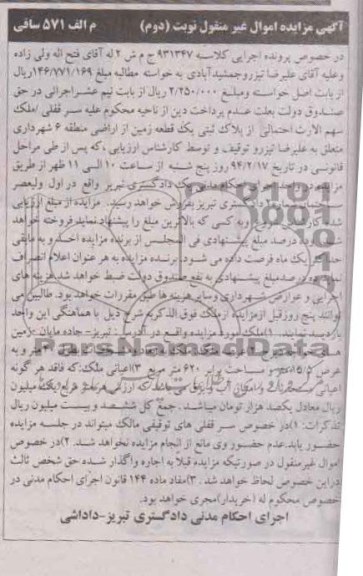 آگهی مزایده اموال غیر منقول نوبت (دوم) م الف ۵۷۱ سافی
در خصوص پرونده اجرایی کلاسه ۹۳۱۳۴۷ ج م ش ۲ له آقای فتح اله ولی زاده
وعلیه آقای علیرضا تیزروجمشیدآبادی به خواسته مطالبه مبلغ ۱۴۶/۷۷۱/۱۶۹ریال
از بابت اصل خواسته ومبلغ ۲/۲۵۰/۰۰۰ ریال از بابت نیم عشراجرائی در حق
صندوق دولت بعلت عدم پرداخت دین از ناحیه محکوم علیه سر قفلی /ملک
سهم الارث احتمالی از پلاک ثبتی یک قطعه زمین از اراضی منطقه ۶ شهرداری
متعلق به علیرضا تیزرو توقیف و توسط کارشناس ارزیابی ،که پس از طی مراحل
قانونی در تاریخ ۹۴/۲/۱۷ روز پنج شنبه از ساعت ۱۰ الی ۱۱ ظهر از طریق
مزایده دادگستری تبریز واقع در اول ولیعصر
دادگستری تبریز بفروش خواهد رسید. مزایده از مبلغ ارزیابی
شده وبه کسی که بالاترین مبلغ را پیشنهاد نماید فروخته خواهد
شد. درصد مبلغ پیشنهادی فی المجلس از برنده مزایده اخذ و به مابقی
یک ماه فرصت داده می شود. برنده مزایده به هر عنوان اعلام انصراف
درصد مبلغ پیشنهادی به نفع صندوق دولت ضبط خواهد شد.هزینه های
اجرایی و عوارض شهرداری وسایر هزینه ها طبق مقررات خواهد بود. طالبین می
توانند پنج روزقبل ازمزایده ازملک فوق الذکربه شرح ذیل با هماهنگی این واحد
بازدید نمایند. ۱)ملک مورد مزایده واقع در آدرس: تبریز- جاده مایان -زمین
ParsNamadData
عرض ۱۵/۵ متر و مساحت برابر ۶۲۰ متر مربع ۳)اعیانی ملک:که فاقد هر گونه
اعیانی یک میلیون
ریال معادل یکصد هزار تومان میباشد. جمع کل ششصد و بیست میلیون ریال
تذکرات: ۱)در خصوص سر قفلی های توقیفی مالک میتواند در جلسه مزایده
حضور یابد.عدم حضور وی مانع از انجام مزایده نخواهد شد. ۲)در خصوص
اموال غیرمنقول در صورتیکه مزایده قبلاً به اجاره واگذار شده حق شخص ثالث
دراین خصوص لحاظ خواهد شد .۳)مفاد ماده ۱۴۴ قانون اجرای احکام مدنی در
خصوص محکوم له (خریدار)مجری خواهد بود.
اجرای احکام مدنی دادگستری تبریز-داداشی